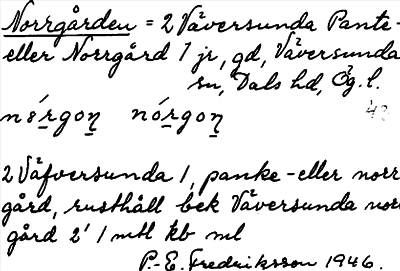 Norrgården = 2 Väversunda Pante-
eller Norrgård 1 jr, gd, Väversunda
sn, Dals hd, Ög. l.
nórgon nórgon
2 Väfversunda 1, panke-eller norr
gård, rusthåll bek Väversunda norr
gård 2' 1 mtl kb ml
P.-E. Fredriksson 1946.